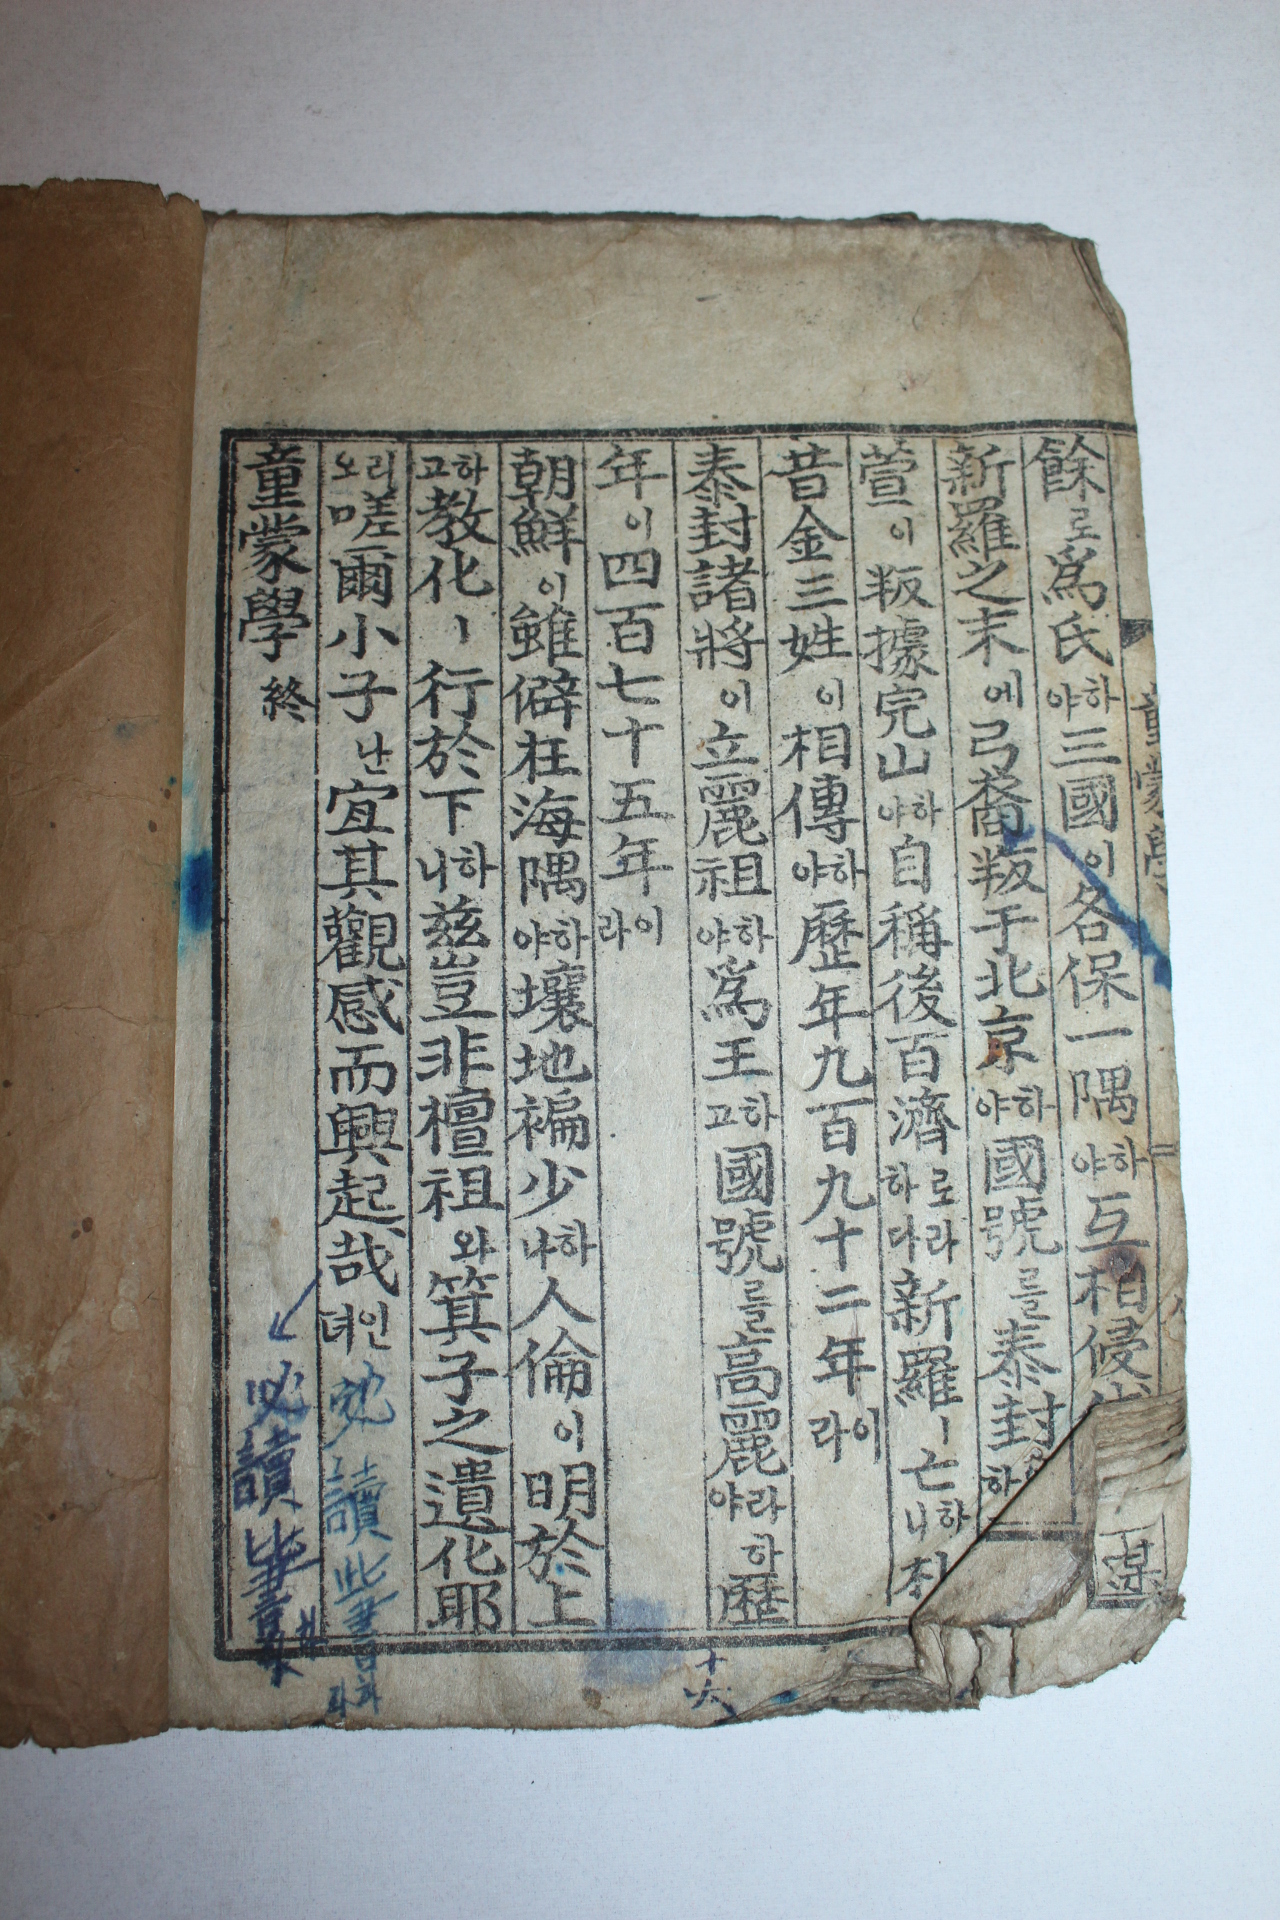 餘로爲氏하야三國이各保一隅하야互相侵
新羅之末에弓裔叛于北京하야國號를泰封
萱이叛據完山하야自稱後百濟로라하다新羅ㅣ亡하니朴
昔金三姓이相傳하야歷年九百九十二年이라
泰封諸將이立麗祖하야爲王하고國號를高麗라하야歷
年이四百七十五年이라
朝鮮이雖僻在海隅하야壤地褊少하나人倫이明於上
하고敎化ㅣ行於下하니玆豈非檀祖와箕子之遺化耶
오리嗟爾小子난宜其觀感而興起哉인뎌
童蒙學 終
童蒙學
十六